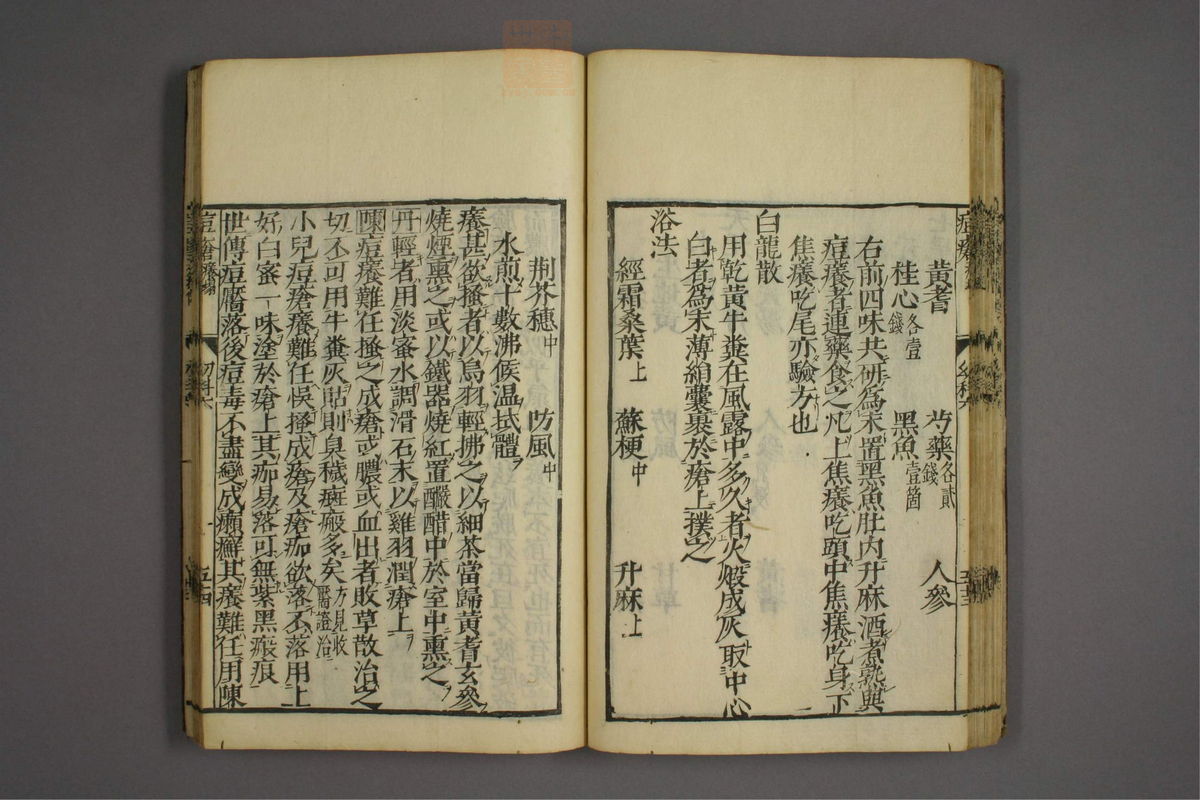 黃耆　芍藥各貳錢　人參
桂心各壹錢　黑魚壹箇
右前四味共研為末置黑魚肚內升麻酒煮熟與
痘癢者連藥食之凡上焦癢吃頭中焦癢吃身下
焦癢吃尾亦驗方也
白龍散
用乾黃牛糞在風露中多久者火煅成灰取中心
白者為末薄絹囊裹於瘡上撲之
浴法
經霜桑葉上　蘇梗中　升麻上
荊芥穗中　防風中
水煎十數沸候温拭體
癢甚欲搔者以鳥羽輕拂之以細茶當歸黃耆玄參
燒煙熏之或以鐵器燒紅置釅醋中於室中熏之
丹輕者用淡蜜水調滑石末以雞羽潤瘡上
陳痘癢難任搔之成瘡或膿或血出者敗草散治之
切不可用牛糞灰貼則臭穢斑瘢多矣方見收靨證治
小兒痘瘡癢難任悞搔成瘡及瘡痂欲落不落用上
好白蜜一味塗於瘡上其痂易落可無紫黑瘢痕
世傳痘靨落後痘毒不盡變成癩癬其癢難任用陳
五十四